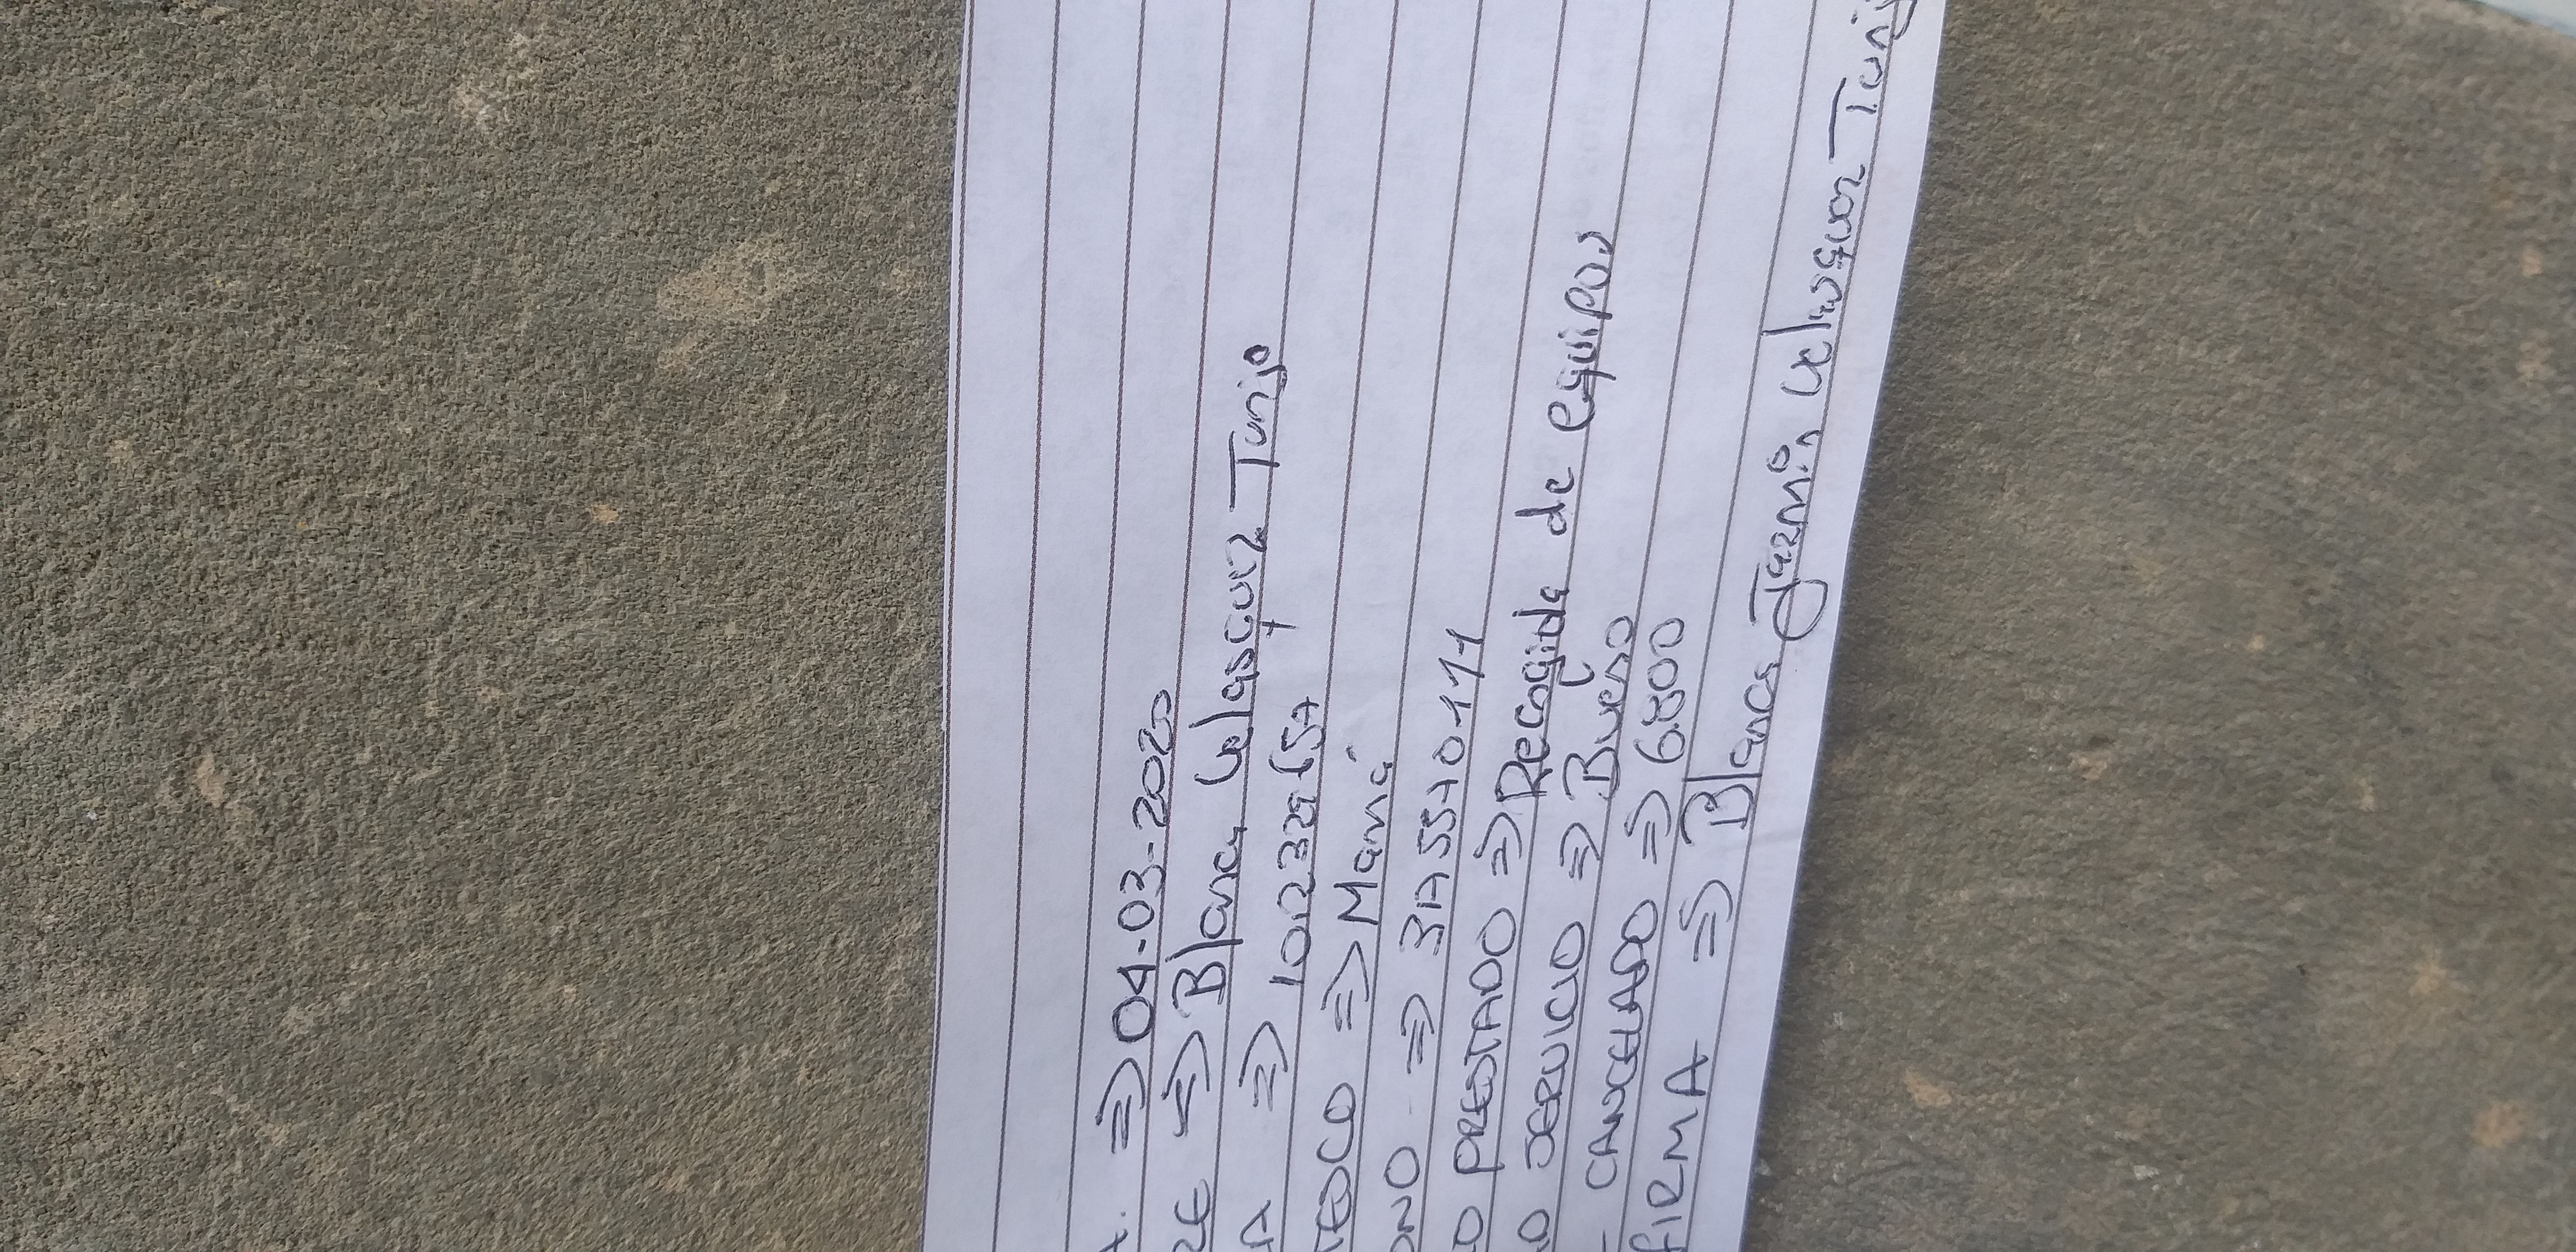 A. => 04-03-2020
RE => Blanca Velasquez Tunjo
A => 1012329657
TESCO => Mamá
ONO => 3175570111
IO PRESTADO => Recogida de equipos
O SERVICIO => Bueno
CANCELADO => 6.800
FIRMA => Blanca Jazmin Velasquez Tunj